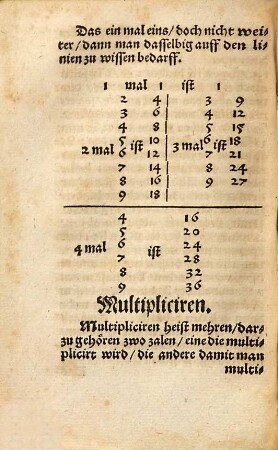 Das ein mal eins / doch nicht wei-
ter / dann man dasselbig auff den li-
nien zu wissen bedarff.
1 mal 1 ist 1
2 4 3 9
3 6 4 12
4 8 5 15
2 mal 5 ist 10 3 mal 6 ist 18
6 12 7 21
7 14 8 24
8 16 9 27
9 18
4 16
5 20
4 mal 6 ist 24
7 28
8 32
9 36
Multipliciren.
Multipliciren heist mehren / dar-
zu gehören zwo zalen / eine die multi-
plicirt wird / die andere damit man
multi-